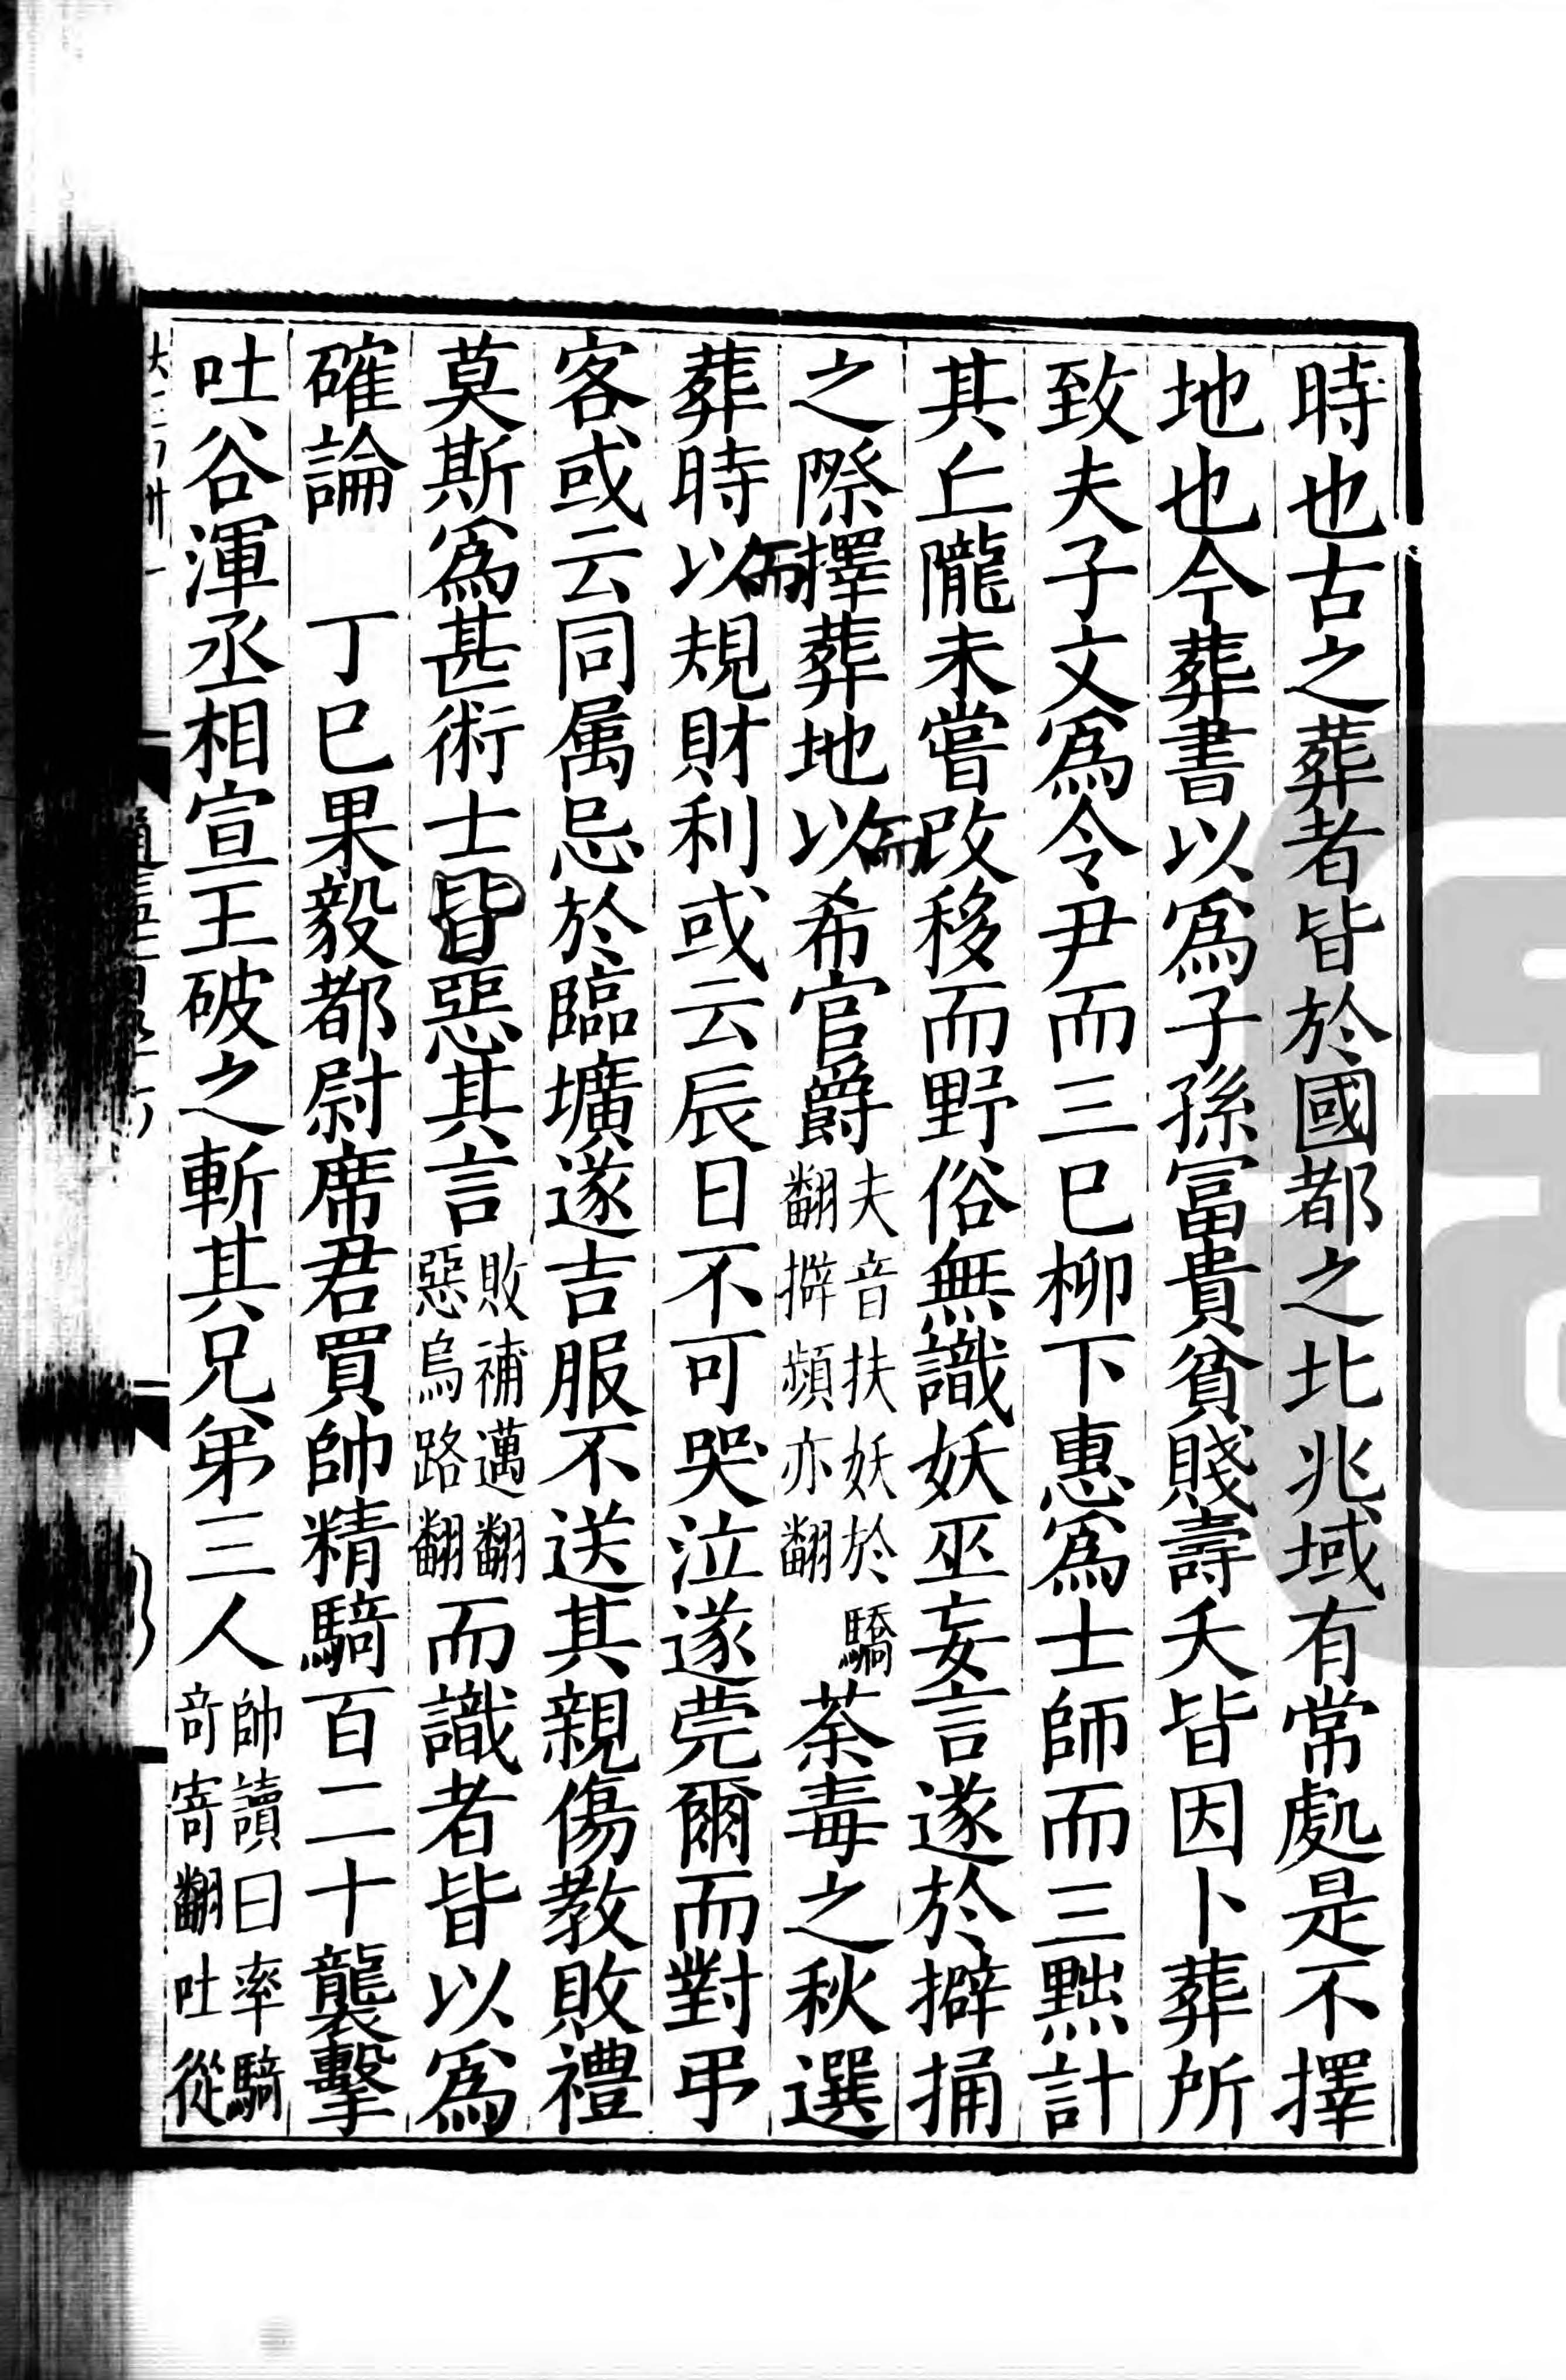 時也古之葬者皆於國都之北兆域有常處是不擇
地也今葬書以爲子孫冨貴貧賤壽夭皆因卜葬所
致夫子文爲令尹而三已柳下惠爲士師而三黜計
其丘隴未嘗改移而野俗無識妖巫妄言遂於擗捅
之際擇葬地以而希官爵夫音扶妖於驕翻擗頻亦翻荼毒之秋選
葬時以而規財利或云辰日不可哭泣遂莞爾而對弔
客或云同属忌於臨壙遂吉服不送其親傷教敗禮
莫斯爲甚術士皆惡其言敗補邁翻惡烏路翻而識者皆以爲
確論　丁巳果毅都尉席君買帥精騎百二十襲擊
吐谷渾丞相宣王破之斬其兄弟三人帥讀曰率騎奇寄翻吐從